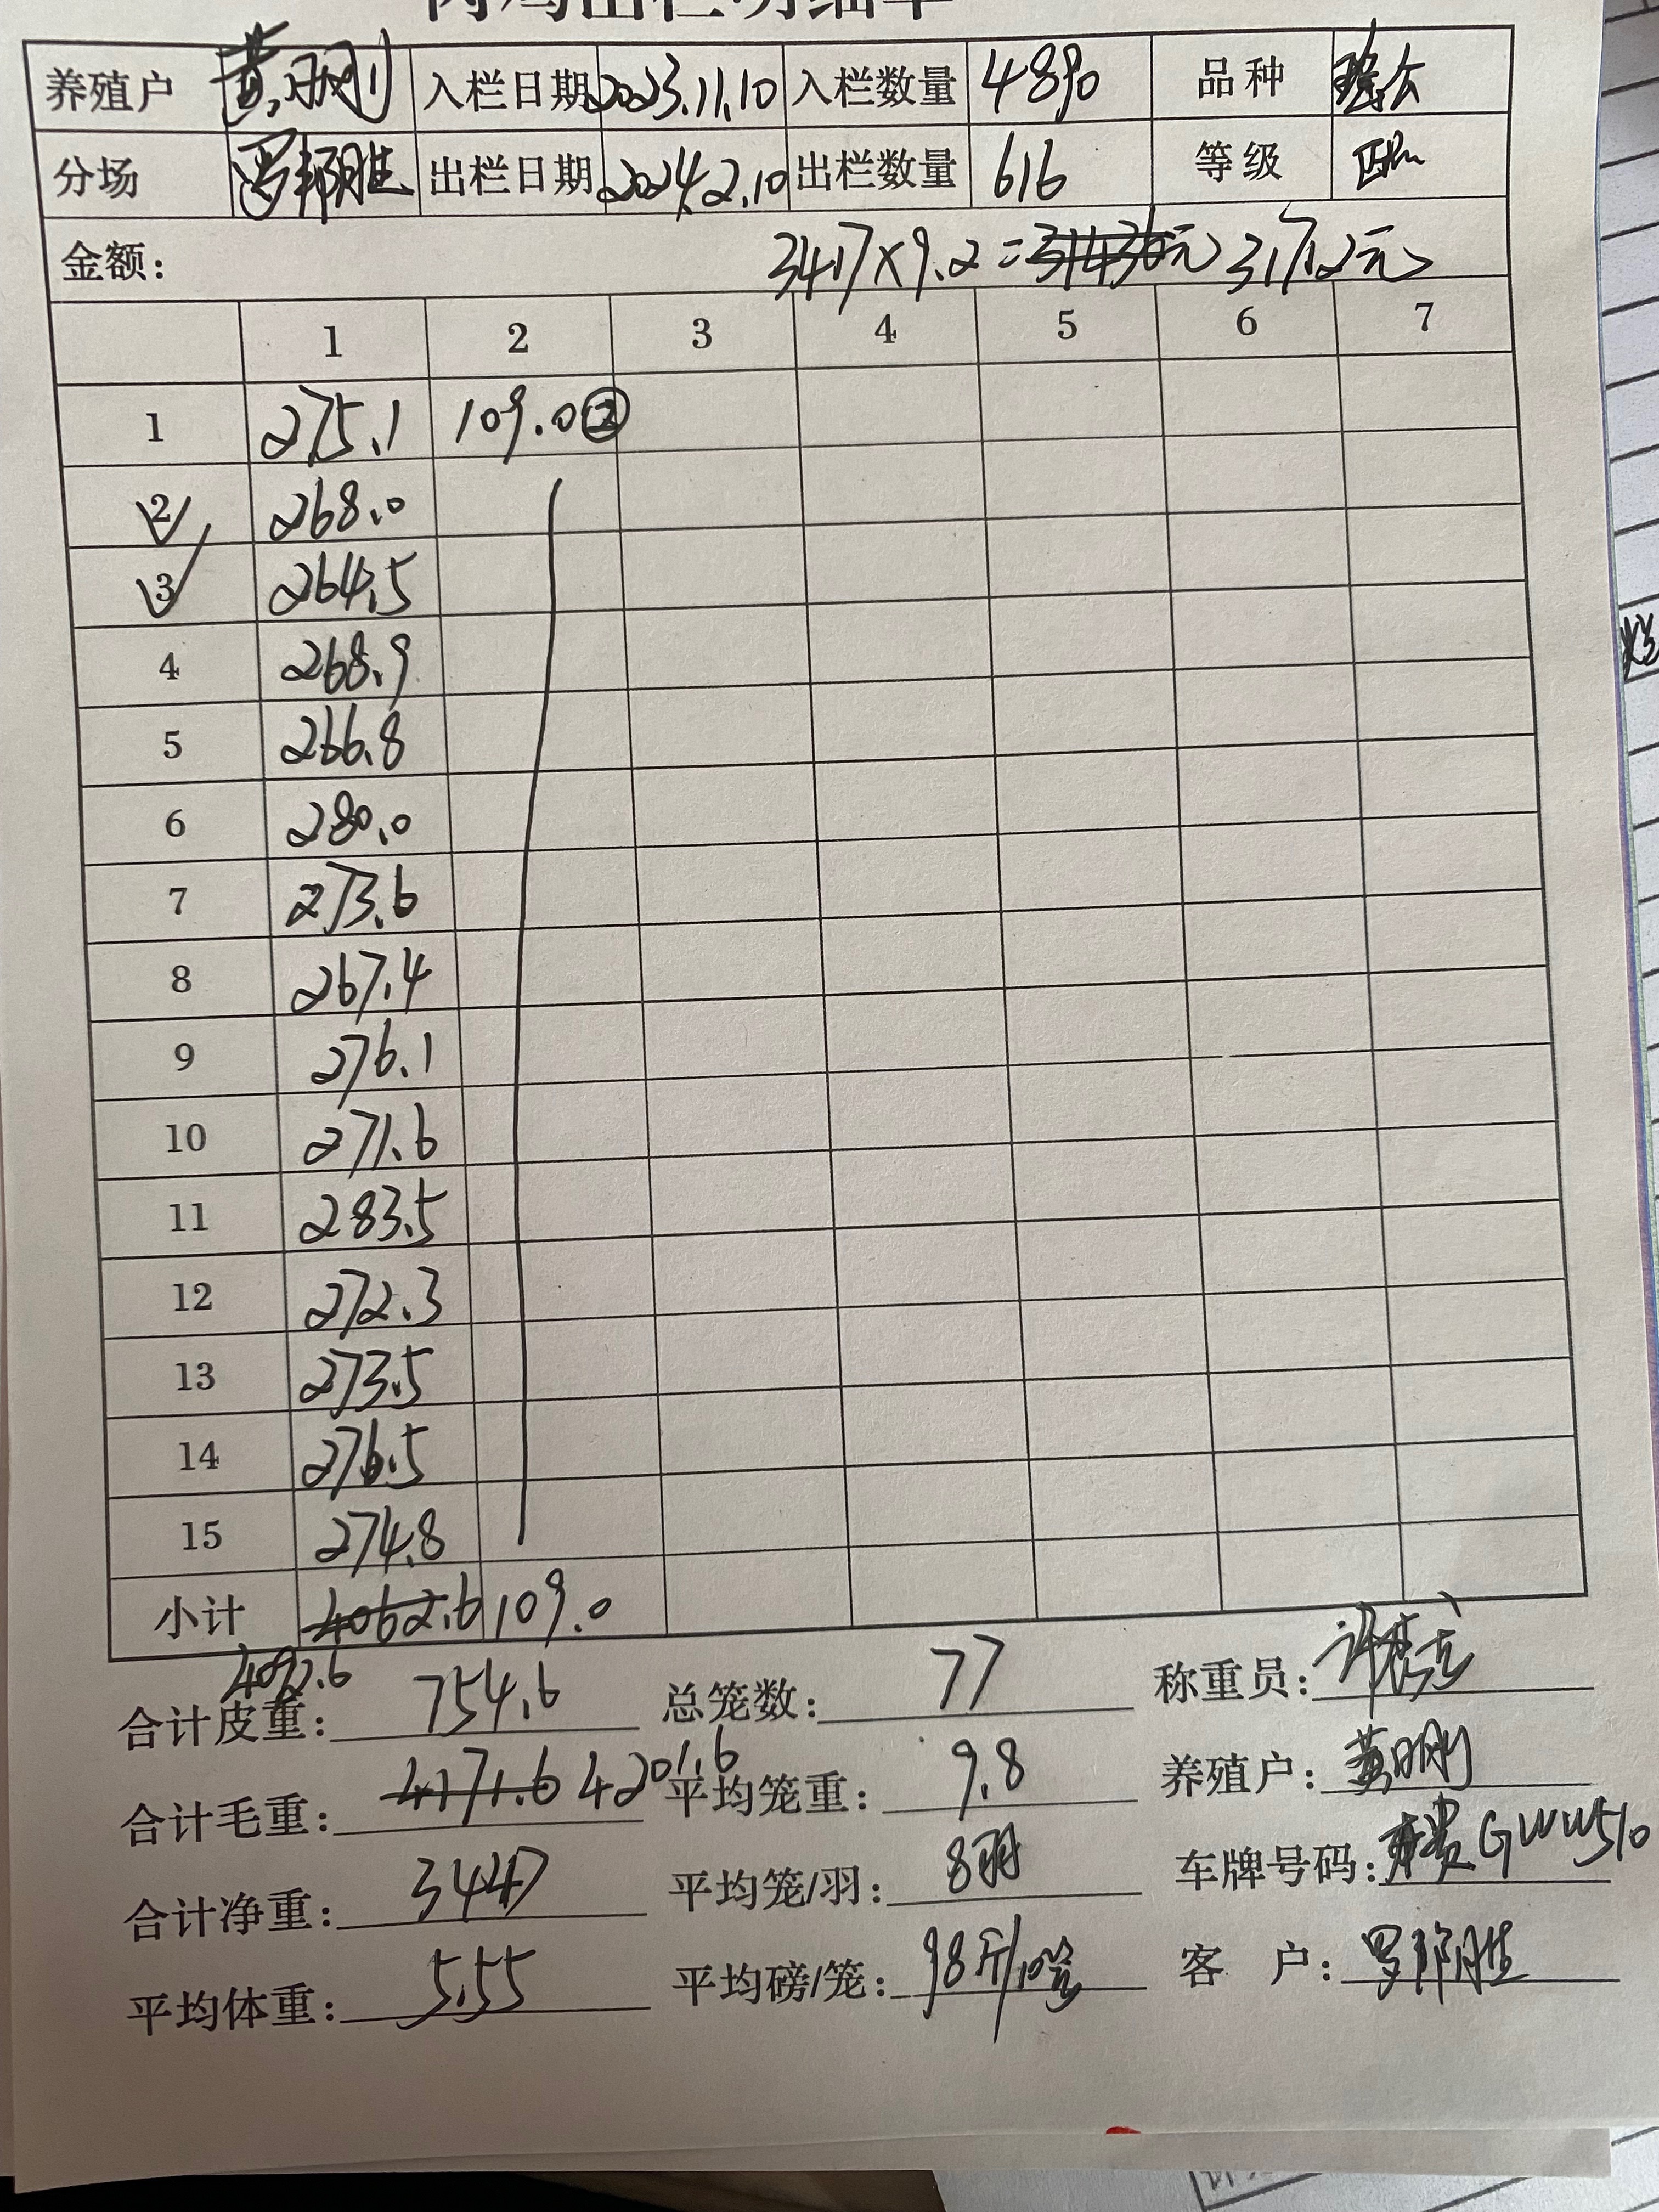 肉鸡出栏明细单
养殖户 黄明刚 入栏日期 2023.11.10 入栏数量 4890 品种 瑶公
分场 罗邦胜 出栏日期 2024.2.10 出栏数量 616 等级
金额: 3417×9.2=31436元 31712元
1 2 3 4 5 6 7
1 275.1 109.0 ②
2 268.0
3 264.5
4 268.9
5 266.8
6 280.0
7 273.6
8 267.4
9 276.1
10 271.6
11 283.5
12 272.3
13 273.5
14 276.5
15 274.8
小计 4062.6 109.0
4092.6
合计皮重: 754.6 总笼数: 77 称重员:
合计毛重: 4171.6 4201.6 平均笼重: 9.8 养殖户: 黄明刚
合计净重: 3447 平均笼/羽: 8羽 车牌号码: 贵GWW510
平均体重: 5.55 平均磅/笼: 98斤/10笼 客户: 罗邦胜